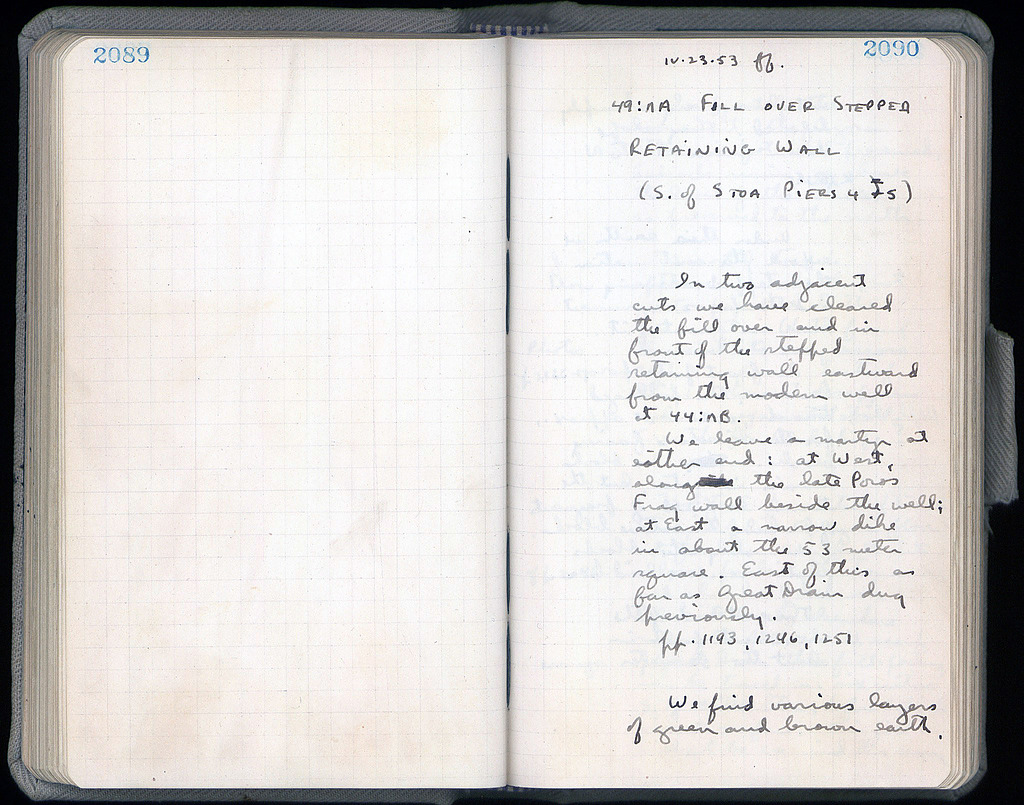 2089
2090
IV.23.53 ff.
49:ΛΑ FILL OVER STEPPED
RETAINING WALL
(S. of STOA PIERS 4 & 5)
In two adjacent
cuts we have cleared
the fill over and in
front of the stepped
retaining wall eastward
from the modern well
at 44:ΛΒ.
We leave a martyr at
either end: at West,
along the late Poros
Frag wall beside the well;
at East a narrow dike
in about the 53 meter
square. East of this as
far as Great Drain dug
previously.
pp. 1193, 1246, 1251
We find various layers
of green and brown earth.